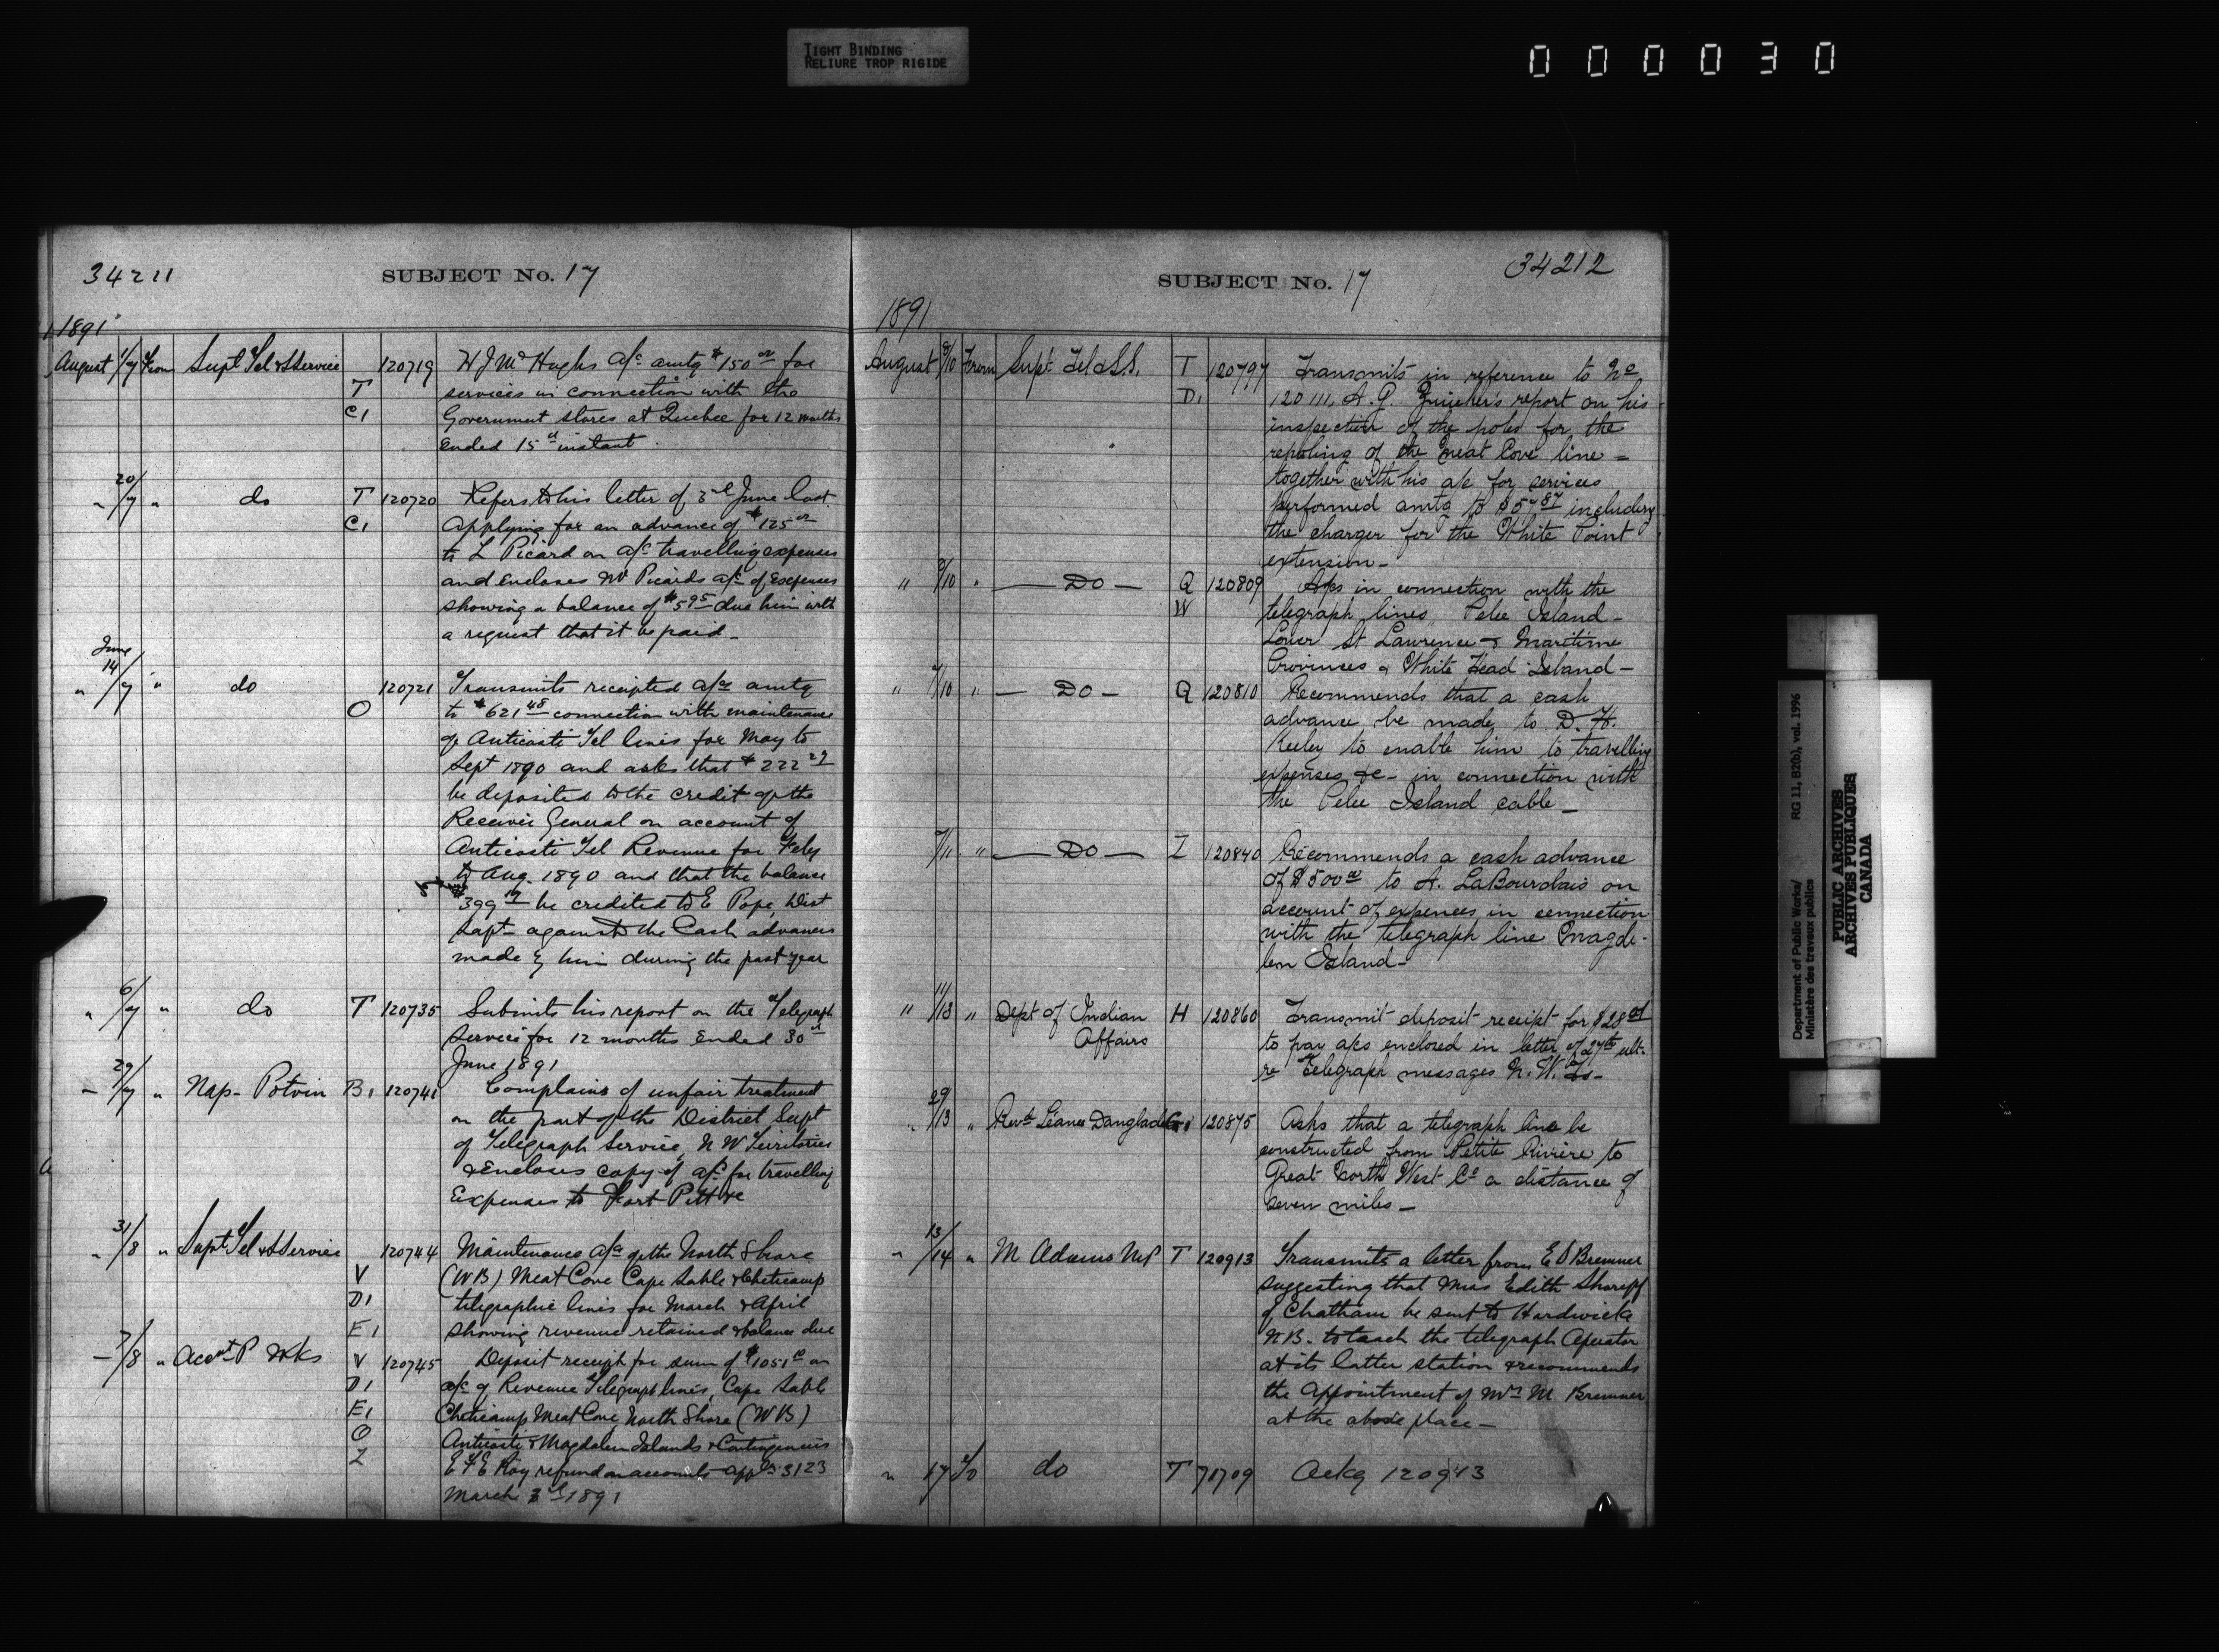 TIGHT BINDING
RELIURE TROP RIGIDE
000030
34211
SUBJECT No. 17
1891
August 1/7 From Supt Tel & S Service 120719 W J McHughs a/c amtg $150 00 for
T services in connection with the
C1 Government stores at Quebec for 12 months
ended 15th instant
" 20/7 " do T 120720 Refers to his letter of 3rd June last
C1 applying for an advance of $125 00
to L Picard on a/c travelling expenses
and encloses Mr Picards a/c of Expenses
showing a balance of $5 95 due him with
a request that it be paid_
June
" 14/7 " do 120721 Transmits receipted a/cs amtg
O to $621 48 connection with maintenance
of Anticosti Tel lines for May to
Sept 1890 and asks that $222 29
be deposited to the credit of the
Receiver General on account of
Anticosti Tel Revenue for Feby
to Aug. 1890 and that the balance
$399 19 be credited to E Pope, Dist
Supt against the Cash advances
made by him during the past year
" 6/7 " do T 120735 Submits his report on the Telegraph
Service for 12 months ended 30th
June 1891
" 29/7 " Nap- Potvin B1 120741 Complains of unfair treatment
on the part of the District Supt
of Telegraph Service, N W Territories
& Encloses copy of a/c for travelling
Expenses to Fort Pitt &c
" 31/8 " Supt Tel & S Service 120744 Maintenance a/cs of the North Shore
V (W B) Meat Cove Cape Sable & Cheticamp
D1 telegraphic lines for March & April
E1 showing revenue retained & balance due
7/8 " Accnt P Wks V 120745 Deposit receipt for sum of $1051 on
D1 a/c of Revenue Telegraph lines, Cape Sable
E1 Cheticamp Meat Cove North Shore (W B)
O Anticosti & Magdalen Islands & Contingencies
Z E F E Roy refund on accounts appln 3123
March 3rd 1891
SUBJECT No. 17
34212
1891
August 8/10 From Supt Tel & S.S. T 120797 Transmits in reference to No
D1 120111, A. G. report on his
inspection of the poles for the
repoling of the Meat Cove line =
together with his a/c for services
performed amtg to $57 87 including
the charges for the White Point
extension_
" 8/10 " Do Q 120809 A/cs in connection with the
W telegraph lines Pelee Island _
Lower St Lawrence & Maritime
Provinces & White Head Island _
" 7/10 " Do Q 120810 Recommends that a cash
advance be made to D. H.
Keeley to enable him to travelling
expenses &c - in connection with
the Pelee Island cable _
7/11 " Do Z 120840 Recommends a cash advance
of $500 00 to A. LaBourdais on
account of expences in connection
with the telegraph line Magda-
len Island_
" 11/13 " Dept of Indian H 120860 Transmit deposit receipt for $28
Affairs to pay a/cs enclosed in letter of 27th ult.
re Telegraph messages N. W.
29/13 " Revd 120875 Asks that a telegraph line be
constructed from Petite Rivière to
Great North West Co a distance of
seven miles _
" 13/14 " M Adams MP T 120913 Transmits a letter from E D Bremner
suggesting that Miss Edith Shareff
of Chatham be sent to Hardwicke
N B. to teach the telegraph Operator
at its latter station & recommends
the appointment of Mrs M Bremner
at the above place _
" 17 To do T 71709 Ackg 120913
Department of Public Works/
Ministère des travaux publics
RG 11, B2(b), vol. 1996
PUBLIC ARCHIVES
ARCHIVES PUBLIQUES
CANADA